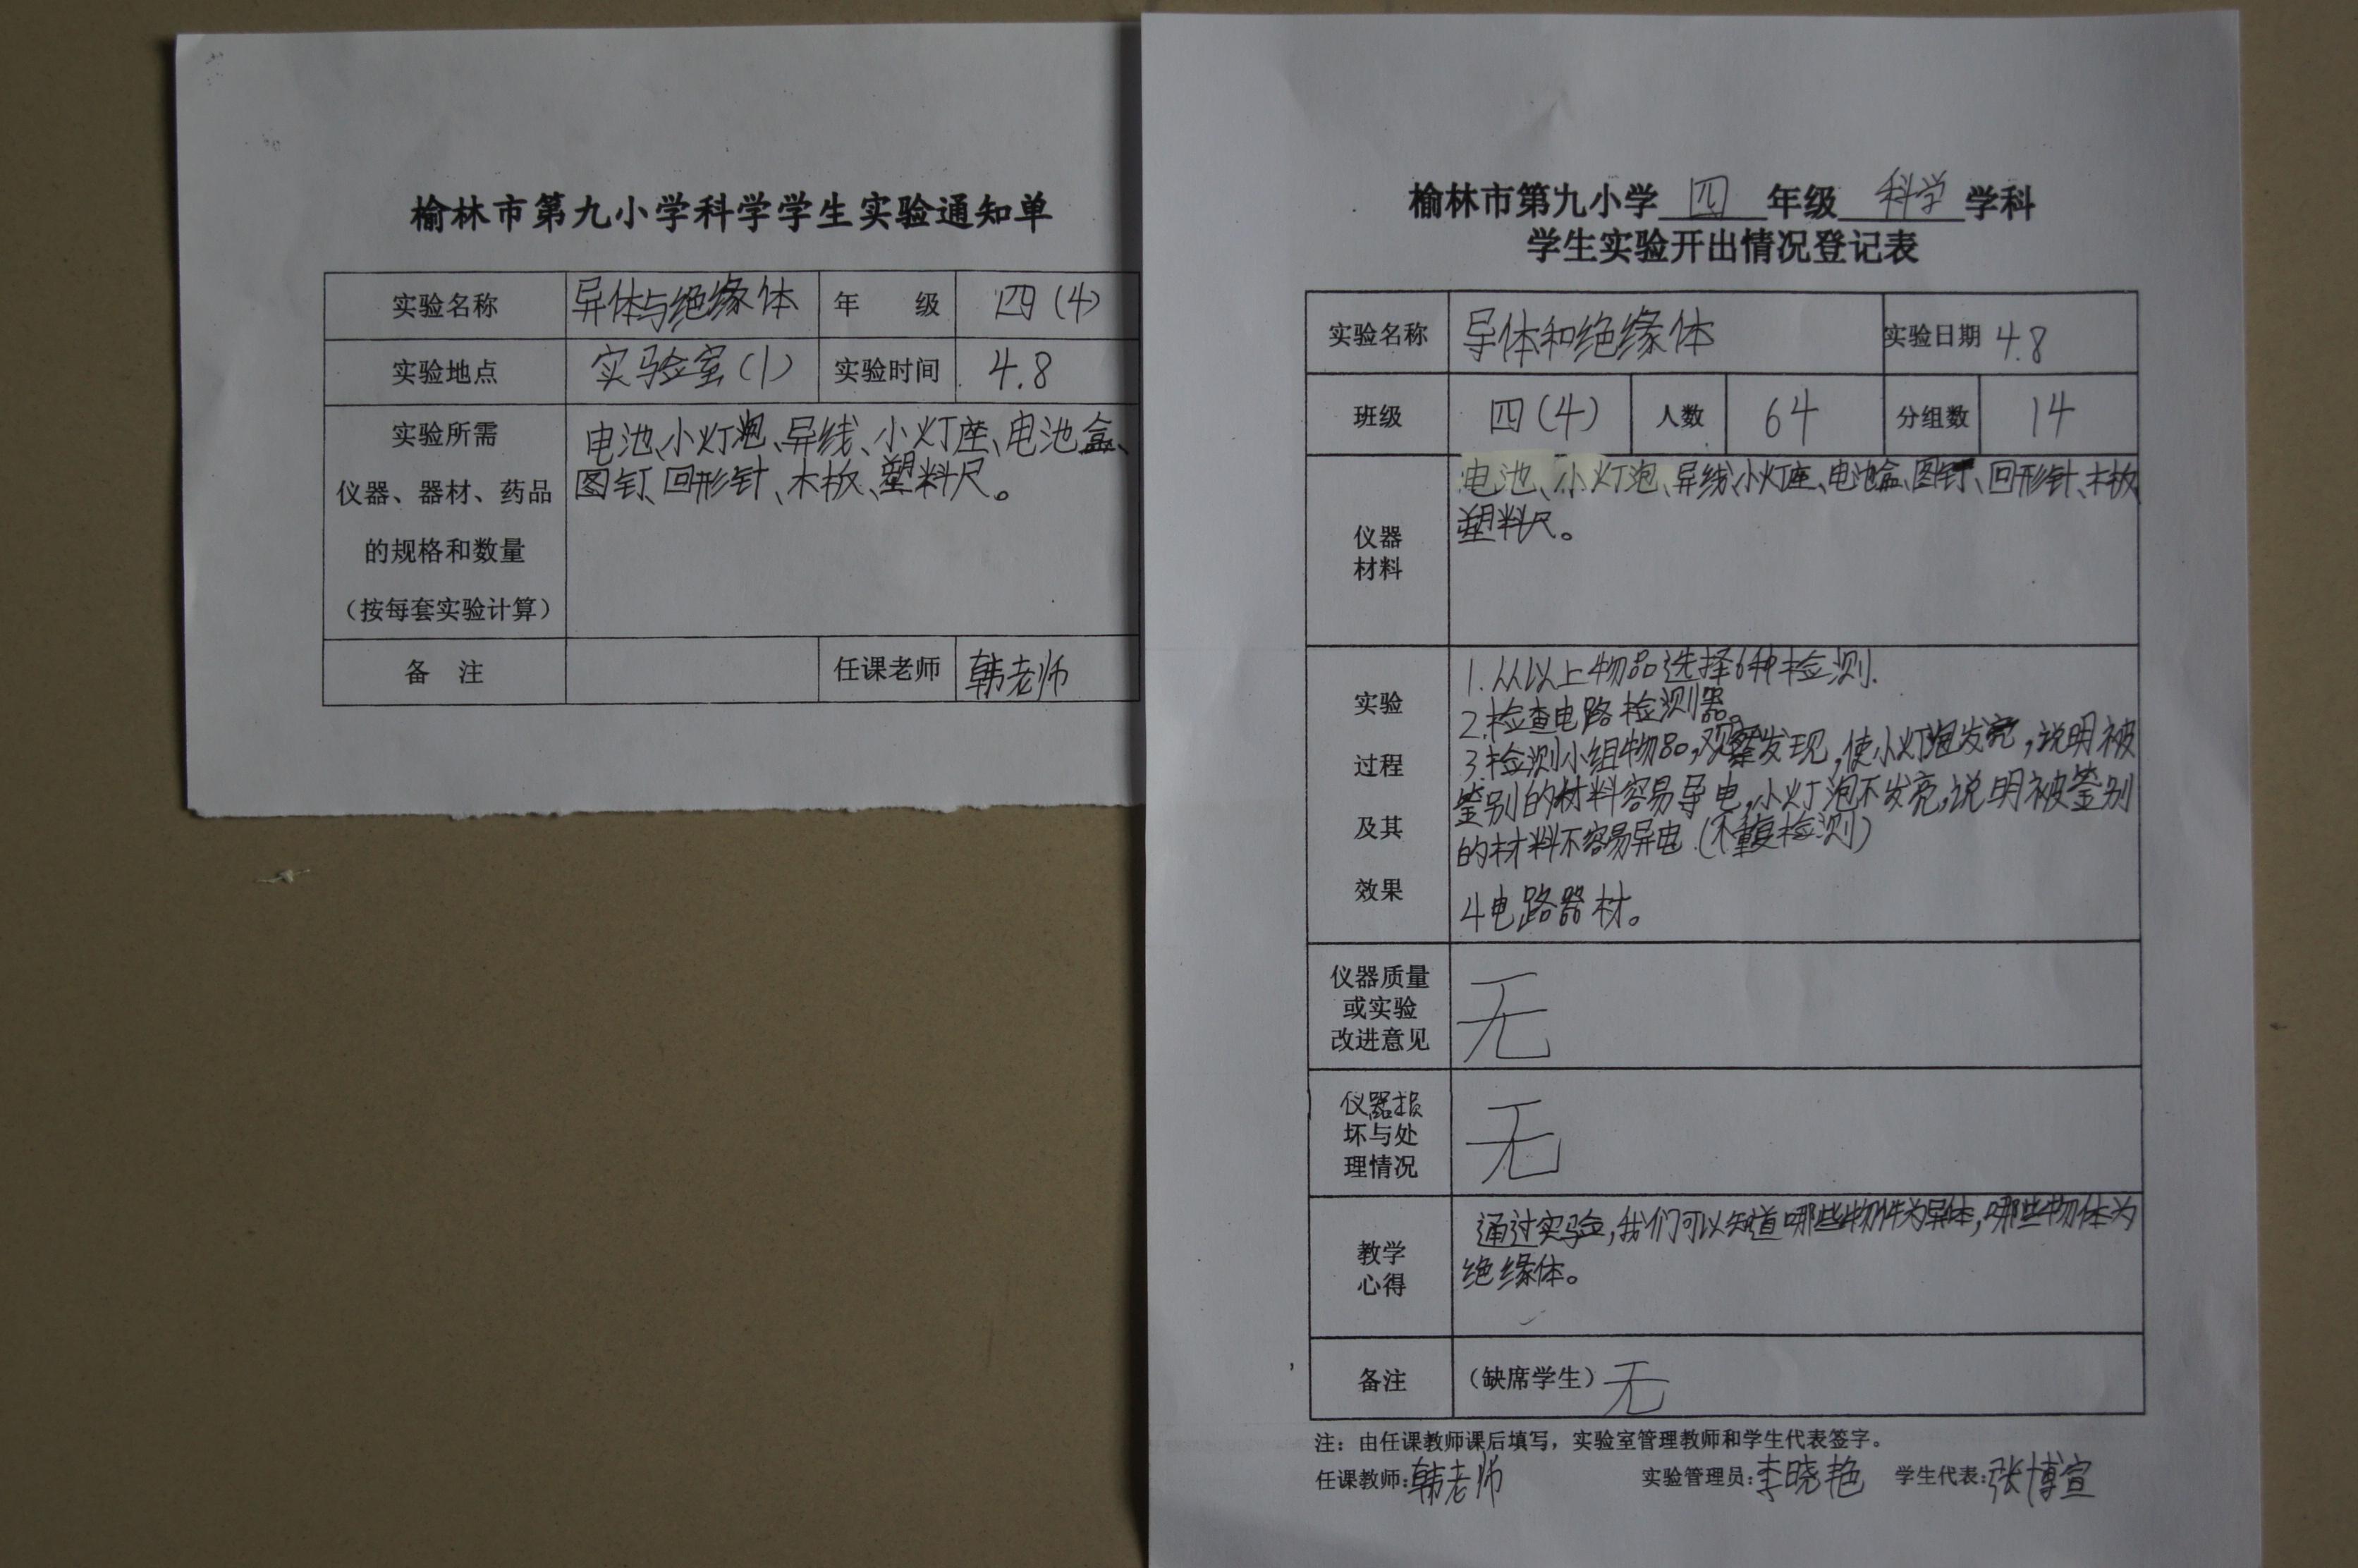 榆林市第九小学科学学生实验通知单
实验名称 导体与绝缘体 年 级 四(4)
实验地点 实验室(1) 实验时间 4.8
实验所需
仪器、器材、药品
的规格和数量
(按每套实验计算)
电池、小灯泡、导线、小灯座、电池盒、
图钉、回形针、木板、塑料尺。
备 注 任课老师 韩老师
榆林市第九小学 四 年级 科学 学科
学生实验开出情况登记表
实验名称 导体和绝缘体 实验日期 4.8
班级 四(4) 人数 64 分组数 14
仪器
材料
电池、小灯泡、导线、小灯座、电池盒、图钉、回形针、木板、
塑料尺。
实验
过程
及其
效果
1.从以上物品选择6种检测.
2.检查电路检测器。
3.检测小组物品,观察发现,使小灯泡发亮,说明被
鉴别的材料容易导电,小灯泡不发亮,说明被鉴别
的材料不容易导电.(不重复检测)
4电路器材。
仪器质量
或实验
改进意见
无
仪器损
坏与处
理情况
无
教学
心得
通过实验,我们可以知道哪些物件为导体,哪些物体为
绝缘体。
备注 (缺席学生) 无
注:由任课教师课后填写,实验室管理教师和学生代表签字。
任课教师:韩老师 实验管理员:李晓艳 学生代表:张博宣